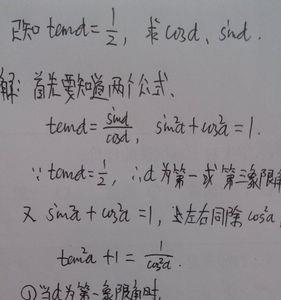 已知 tand=1/2, 求 cosd、sind.
解: 首先要知道两个公式、
tand=sind/cosd, sin²d+cos²d=1.
∵tand=1/2, ∴d为第一或第三象限角
又 sin²d+cos²d=1, 上左右同除 cos²d,
tan²d+1=1/cos²d.
①当d为第一象限角时,